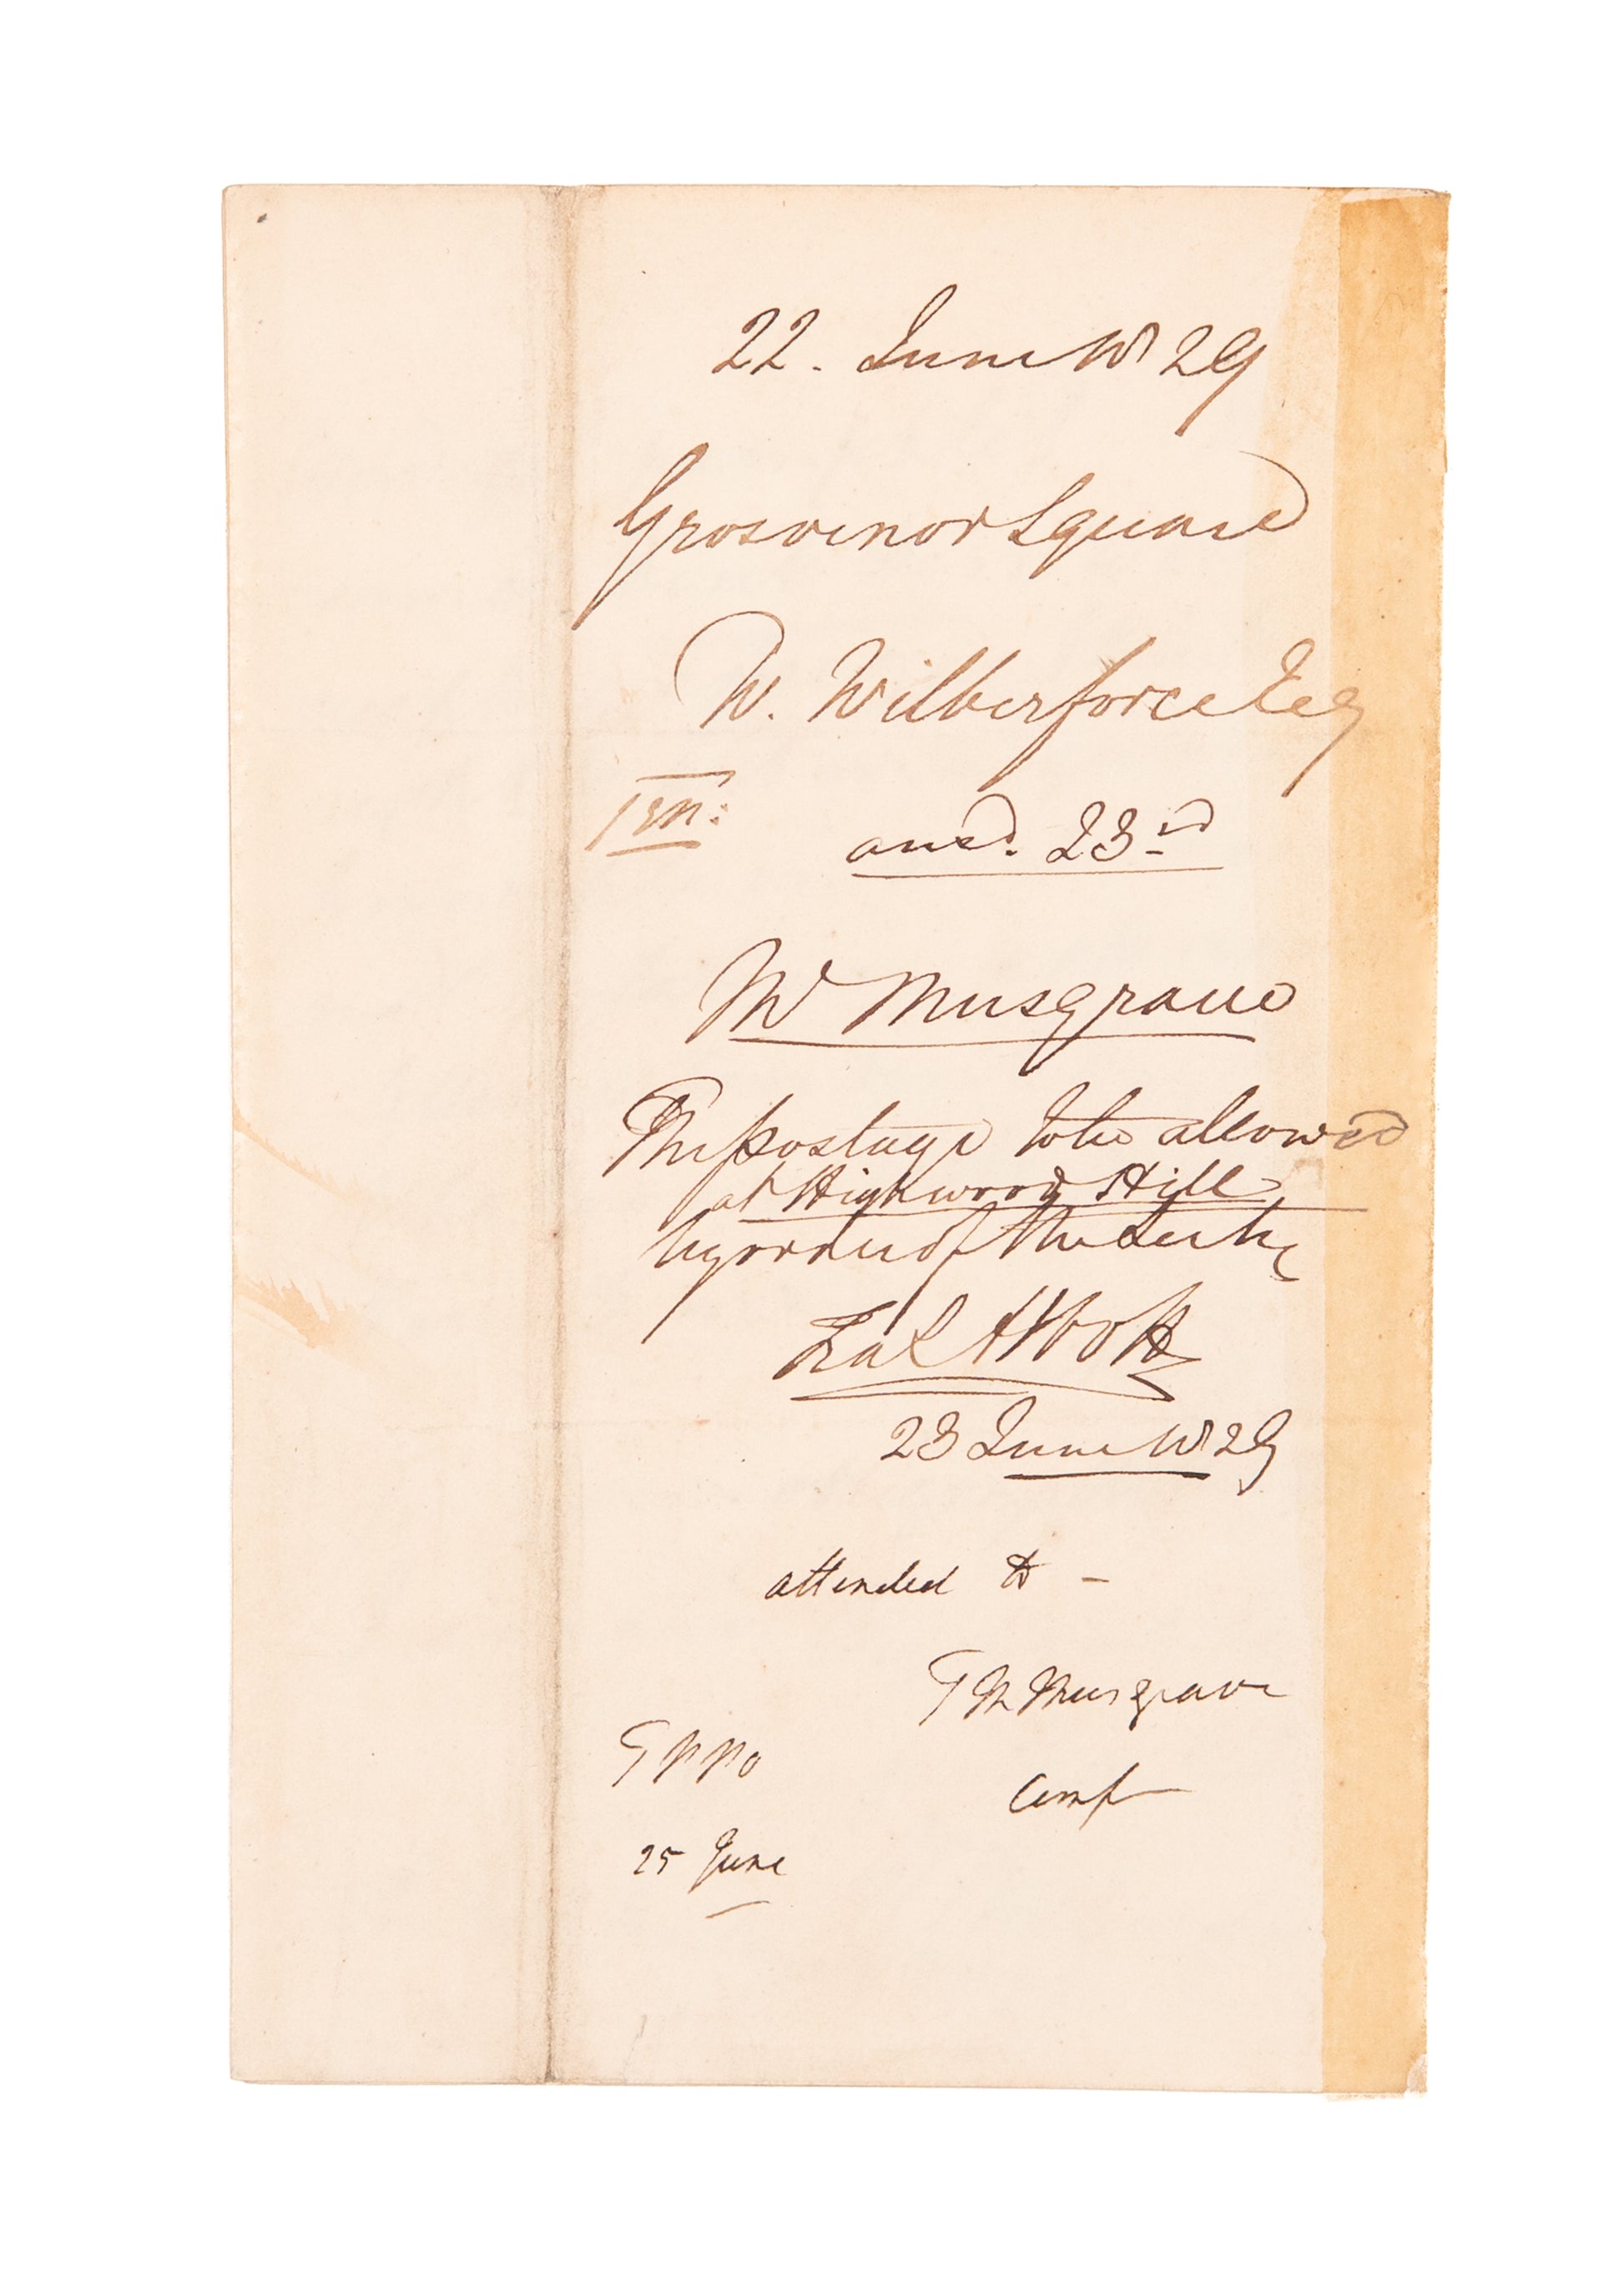 22. June 1829
Grosvenor Square
W. Wilberforce Esq
ansd. 23rd
Mr Musgrave
The postage to be allowed
at Highwood Hill
by order of the Secty
23 June 1829
attended to -
T M Musgrave
TPPO
25 June